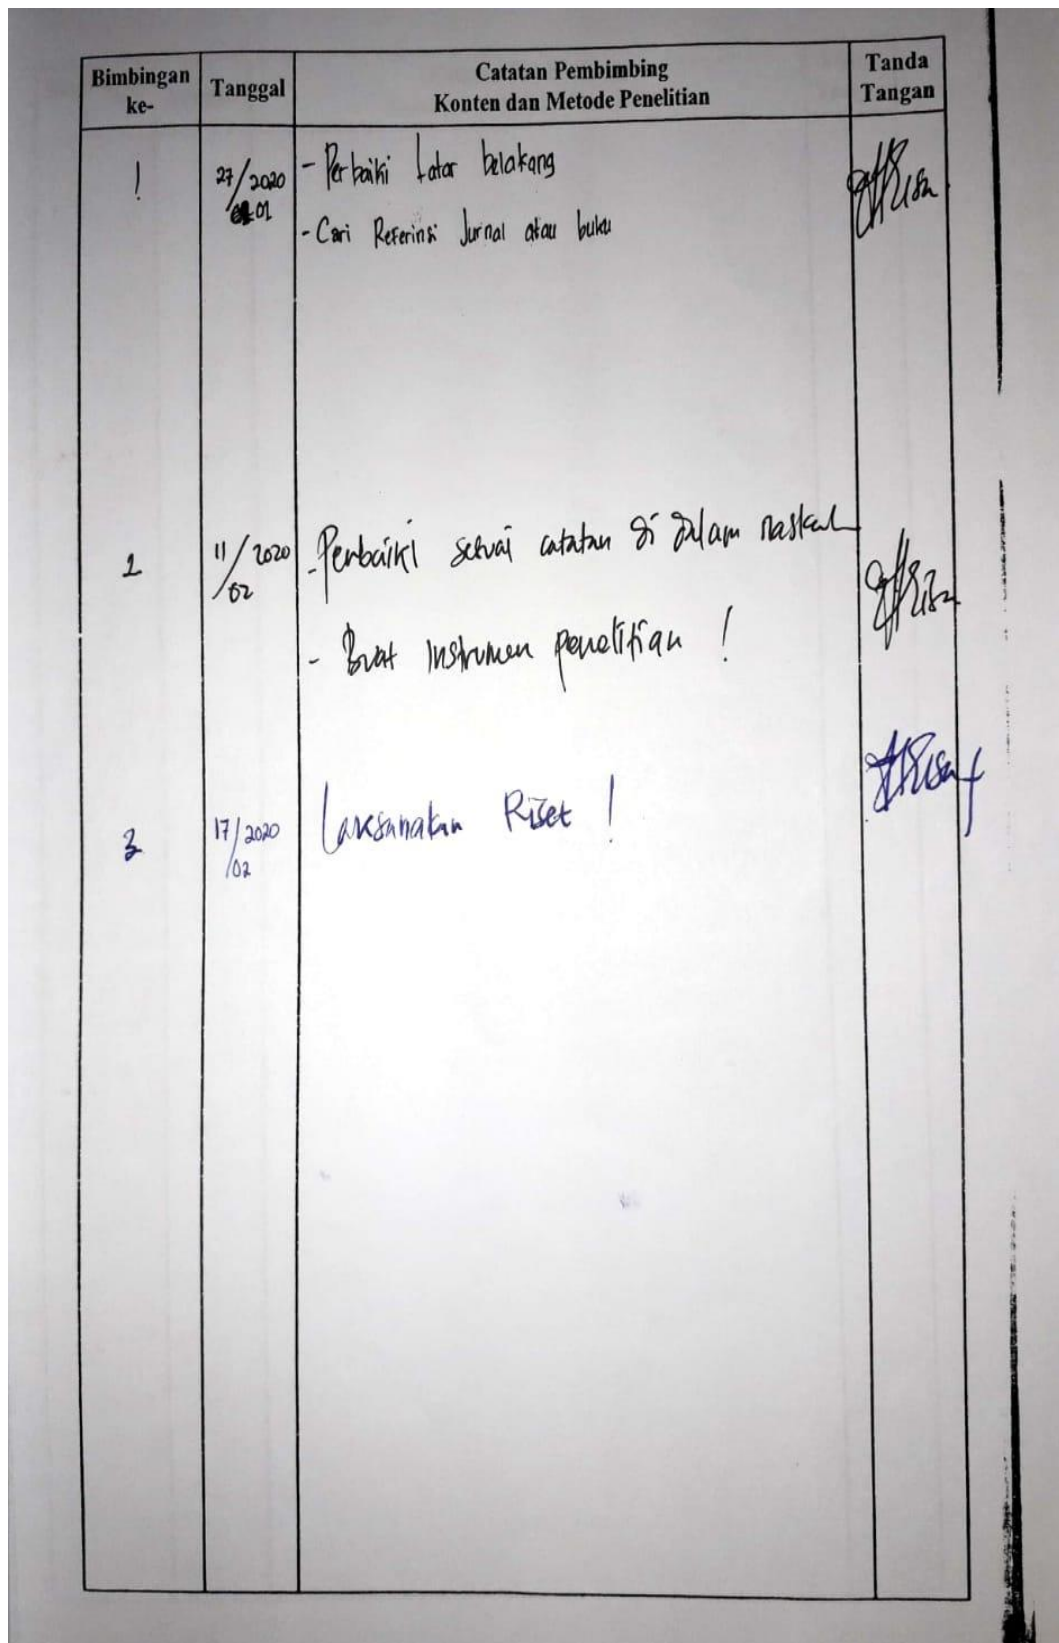 Bimbingan ke-
Tanggal
Catatan Pembimbing
Konten dan Metode Penelitian
Tanda Tangan
1
27/2020
01
- Perbaiki Latar belakang
- Cari Referinsi Jurnal atau buku
2
11/2020
02
- Perbaiki sesuai catatan di dalam naskah
- Buat Instrumen penelitian !
3
17/2020
02
Laksanakan Riset !